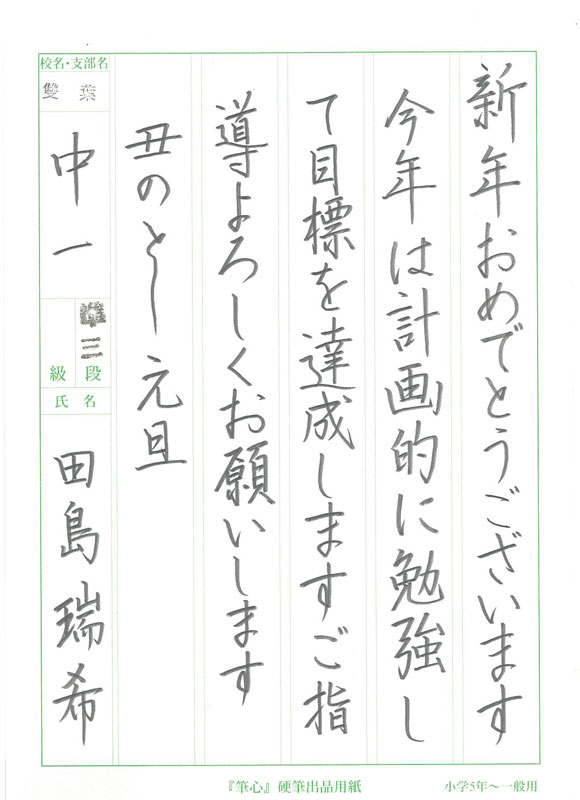 新年おめでとうございます
今年は計画的に勉強し
て目標を達成しますご指
導よろしくお願いします
丑のとし元旦
校名・支部名
雙葉
中一
三段
級
氏名
田島瑞希
『筆心』硬筆出品用紙
小学5年～一般用